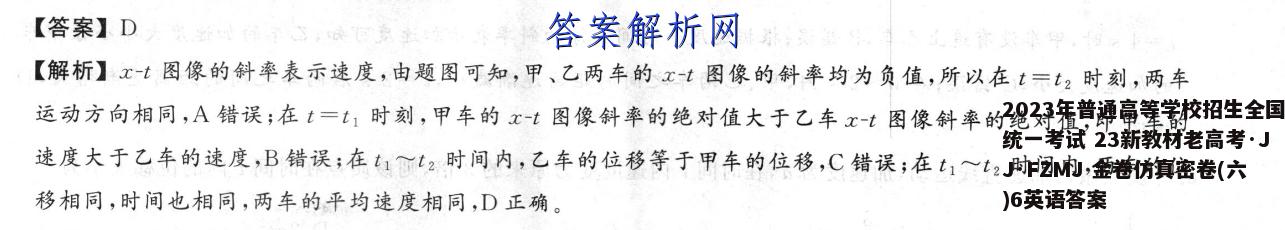 【答案】D
答案解析网
【解析】x-t 图像的斜率表示速度,由题图可知,甲、乙两车的 x-t 图像的斜率均为负值,所以在 t=t₂ 时刻,两车
运动方向相同,A 错误;在 t=t₁ 时刻,甲车的 x-t 图像斜率的绝对值大于乙车 x-t 图像斜率的绝对值,即甲车的
速度大于乙车的速度,B 错误;在 t₁~t₂ 时间内,乙车的位移等于甲车的位移,C 错误;在 t₁~t₂
移相同,时间也相同,两车的平均速度相同,D 正确。
2023年普通高等学校招生全国
统一考试 23新教材老高考·J
J·FZMJ·金卷仿真密卷(六
)6英语答案